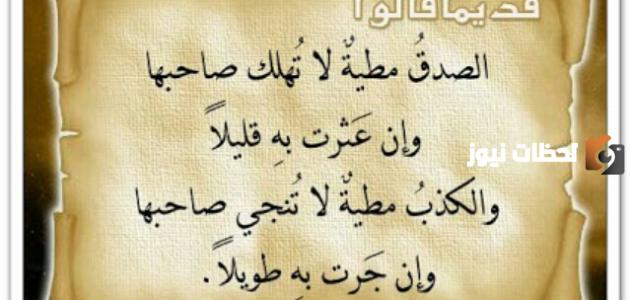 قديما قالوا
الصدقُ مطيةٌ لا تُهلك صاحبها
وإن عَثرت بهِ قليلاً
لحظات نيوز
والكذبُ مطيةٌ لا تُنجي صاحبها
وإن جَرت بهِ طويلاً.